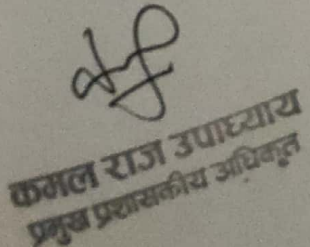 कमल राज उपाध्याय
प्रमुख प्रशासकीय अधिकृत